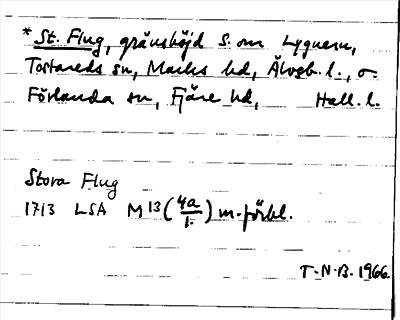 * St. Flug, gränshöjd S. om Lygnern,
Tostareds sn, Marks hd, Älvsb. l., o.
Förlanda sn, Fjäre hd, Hall. l.
Stora Flug
1713 LSA M 13 (4a/1.) m. förbl.
T.N.B. 1966.